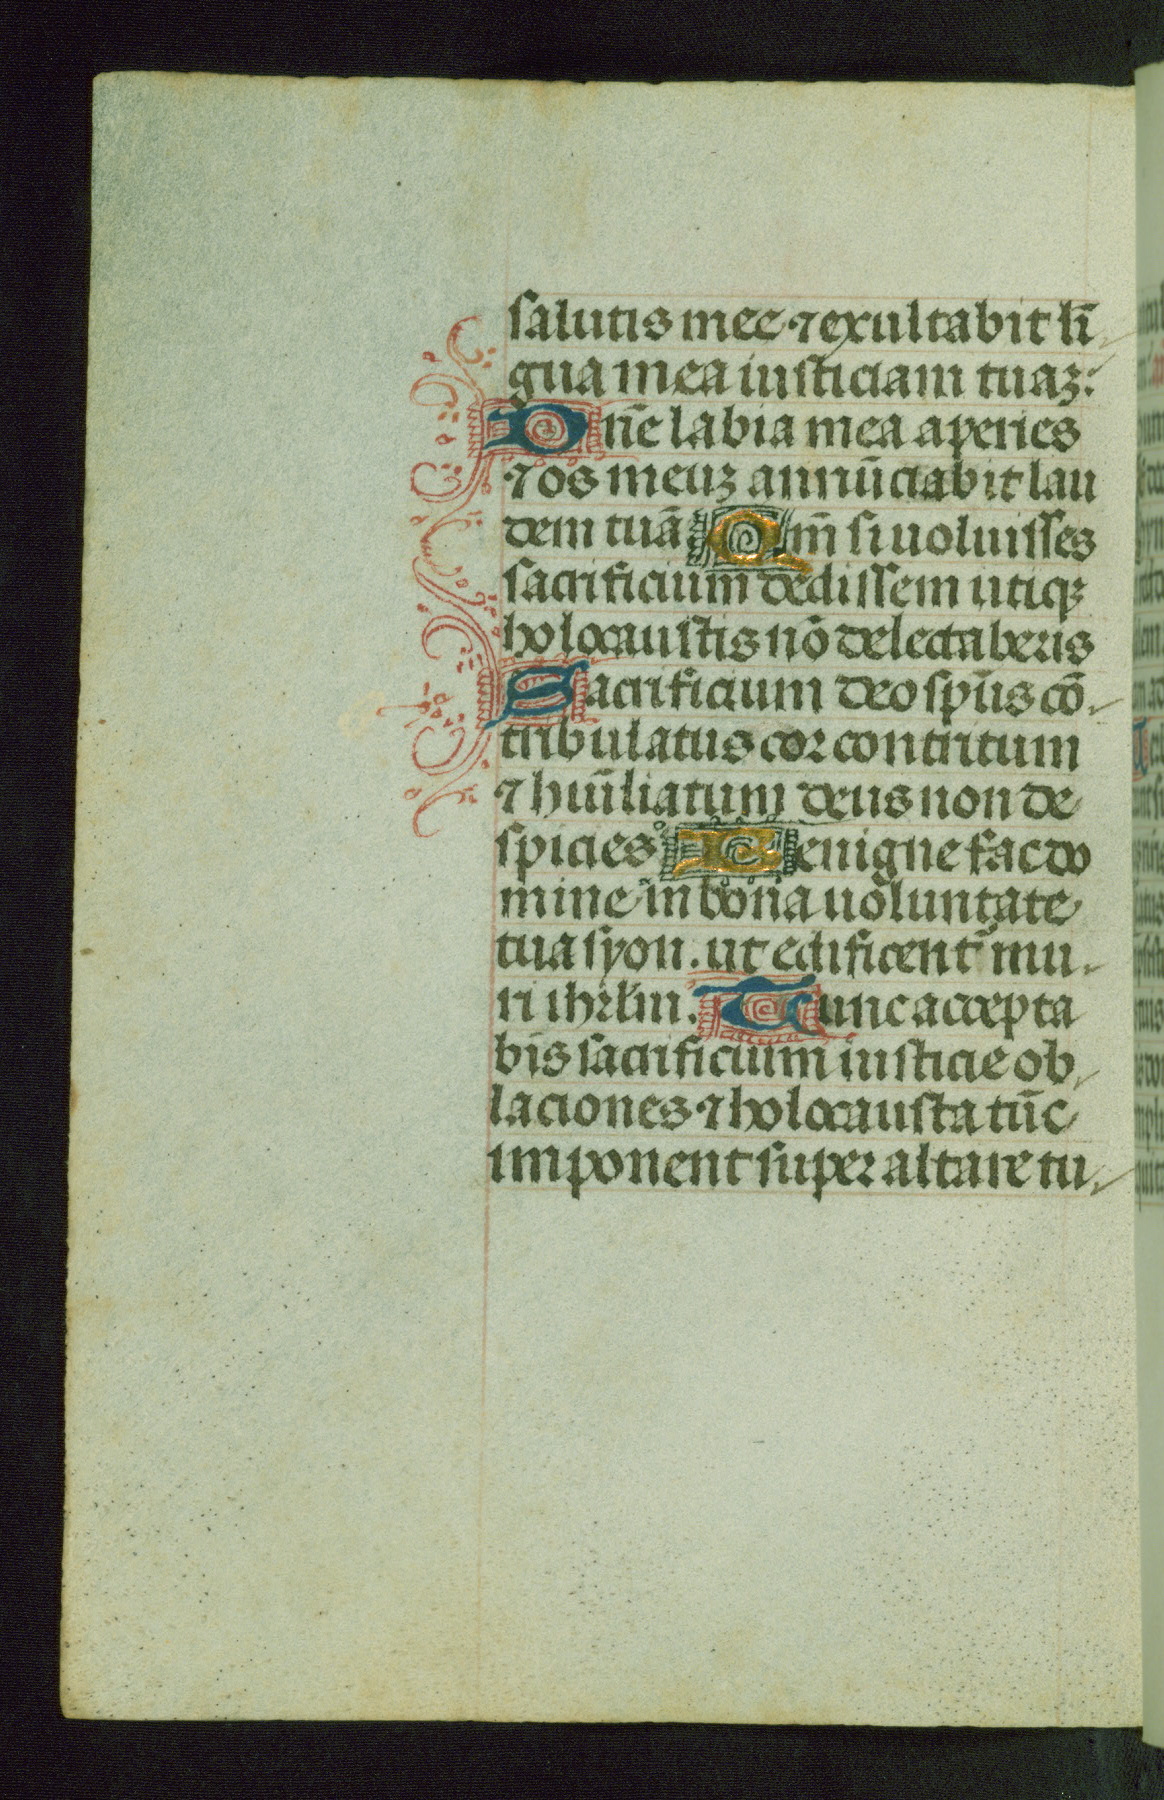 salutis mee ⁊ exultabit lī
gua mea iusticiam tuaꝫ:
Dn̄e labia mea aperies
⁊ os meuꝫ annūciabit lau
dem tuā Qm̄ si uoluisses
sacrificium dedissem utiqꝫ
holocaustis nō delectaberis
Sacrificium deo sp̄us cō
tribulatus cor contritum
⁊ hūiliatum deus non de
spicies Benigne fac do
mine in bona uoluntate
tua syon. ut edificent᷑ mu
ri ihrl̄m. Tunc accepta
bis sacrificium iusticie ob
laciones ⁊ holocausta tūc
imponent super altare tu